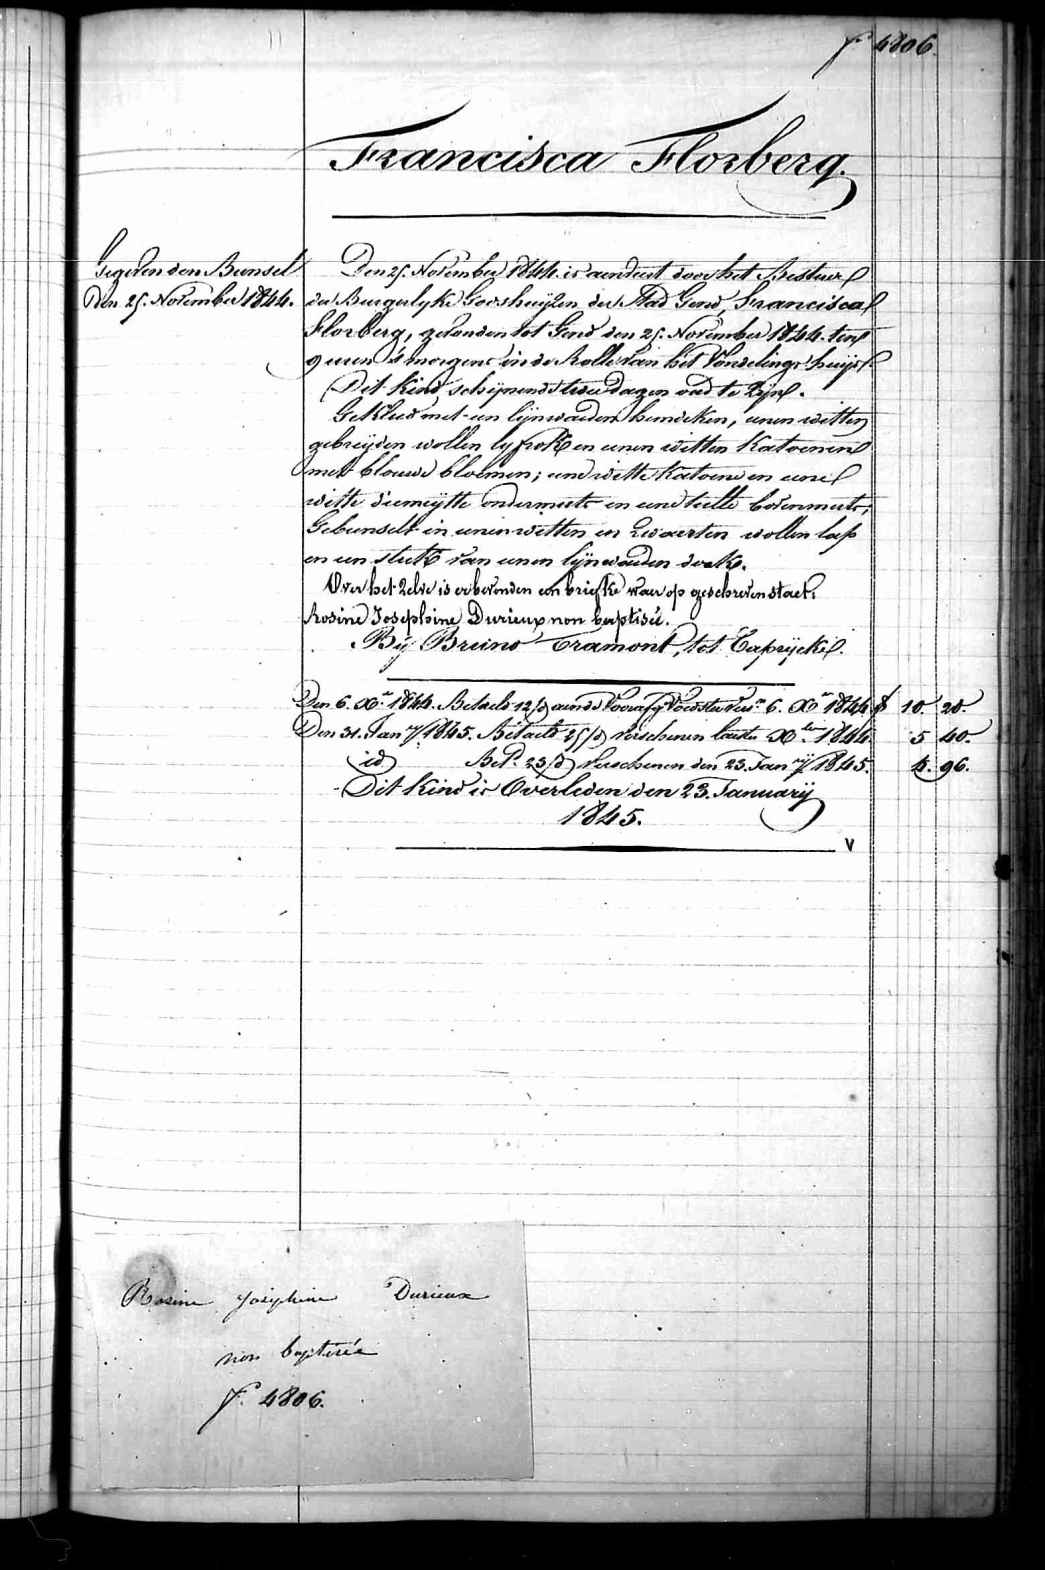 f° 4806.
Francisca Florberg.
Gegeven den Bunsel
Den 25. November 1844.
Den 25. November 1844. is aenveert door het Bestuer
der Burgerlyke Godshuijzen der Stad Gend, Francisca
Florberg, gevonden tot Gend den 25. November 1844. ten
9 uren 's morgens in de Rolle van het Vondelings huijs.
Dit kind schijnende twee dagen oud te zijn.
Gekleed met een lijnwaeden hemdeken, eenen witten
gebreijden wollen lyfrok en eenen witten katoenen
met blouwe bloemen; eene witte katoene en eene
witte diemijtte ondermuts en eene tulle bovenmuts;
Gebunselt in eenen witten en zwaerten wollen lap
en een stuk van eenen lijnwaeden doek.
Over het zelve is er bevonden een briefke waer op geschreven staet:
Rosine Josephine Durieux non baptisée.
Bij Bruno Tramont, tot Caprijcke.
Den 6. Xr 1844. Betaelt 12/d aen de Voorafg Voedster Vers.n 6. Xr 1844 f 10. 20.
Den 31. Jany 1845. Betaelt 25/d verschenen lasten Xber 1844. 5 40.
id Bet.d 23/d verschenen den 23. Jany 1845. 4. 96.
Dit kind is Overleden den 23. January
1845.
v
Rosine Joséphine Durieux
non baptisée
f° 4806.